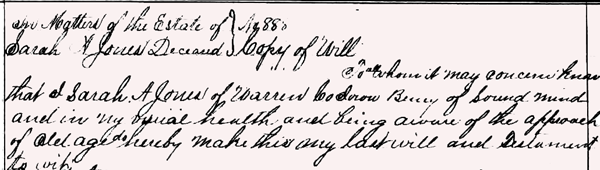 In Matters of the Estate of } No 88
Sarah A Jones Deceased } Copy of Will
To all whom it may concern know
that I Sarah A Jones of Warren Co Iowa Being of Sound mind
and in my usual health and being aware of the approach
of old age do hereby make this my last will and Testament
to wit